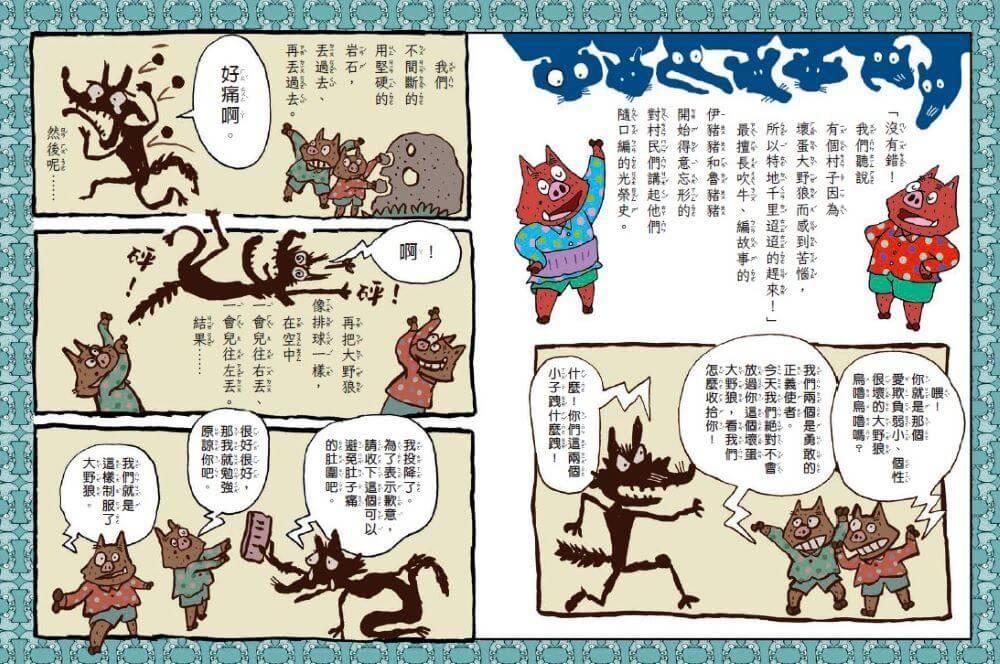 「沒有錯!
我們聽說
有個村子因為
壞蛋大野狼而感到苦惱,
所以特地千里迢迢的趕來!」
最擅長吹牛、編故事的
伊豬豬和魯豬豬
開始得意忘形的
對村民們講起他們
隨口編的光榮史。
喂!
你就是那個
愛欺負弱小、個性
很壞的大野狼
烏嚕烏嚕嗎?
我們兩個是勇敢的
正義使者。
今天我們絕對不會
放過你這個壞蛋
大野狼,看我們
怎麼收拾你!
什麼!你們這兩個
小子跩什麼跩!
我們
不間斷的
用堅硬的
岩石,
丟過去、
再丟過去。
好痛啊。
然後呢……
啊!
砰!
砰!
再把大野狼
像排球一樣,
在空中
一會兒往右丟、
一會兒往左丟。
結果……
我投降了。
為了表示歉意,
請收下這個可以
避免肚子痛
的肚圍吧。
很好很好,
那我就勉強
原諒你吧。
我們就是
這樣制服了
大野狼。